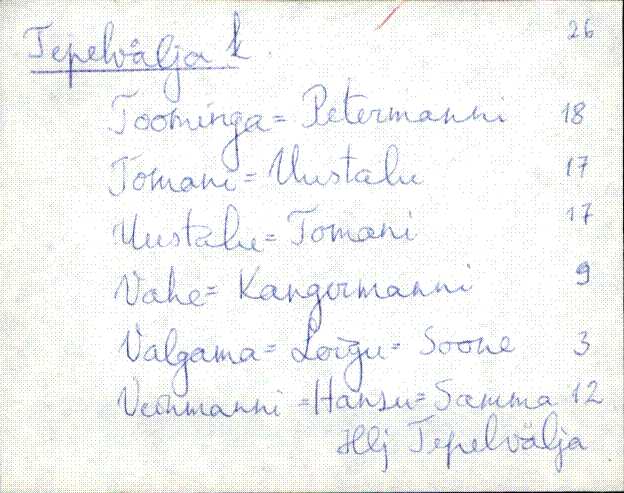 Tepelvälja k. 26
Toominga = Petermanni 18
Tomani = Uustalu 17
Uustalu = Tomani 17
Vahe = Kangermanni 9
Valgama = Loigu = Soone 3
Veermanni = Hansu = Samma 12
Hlj Tepelvälja